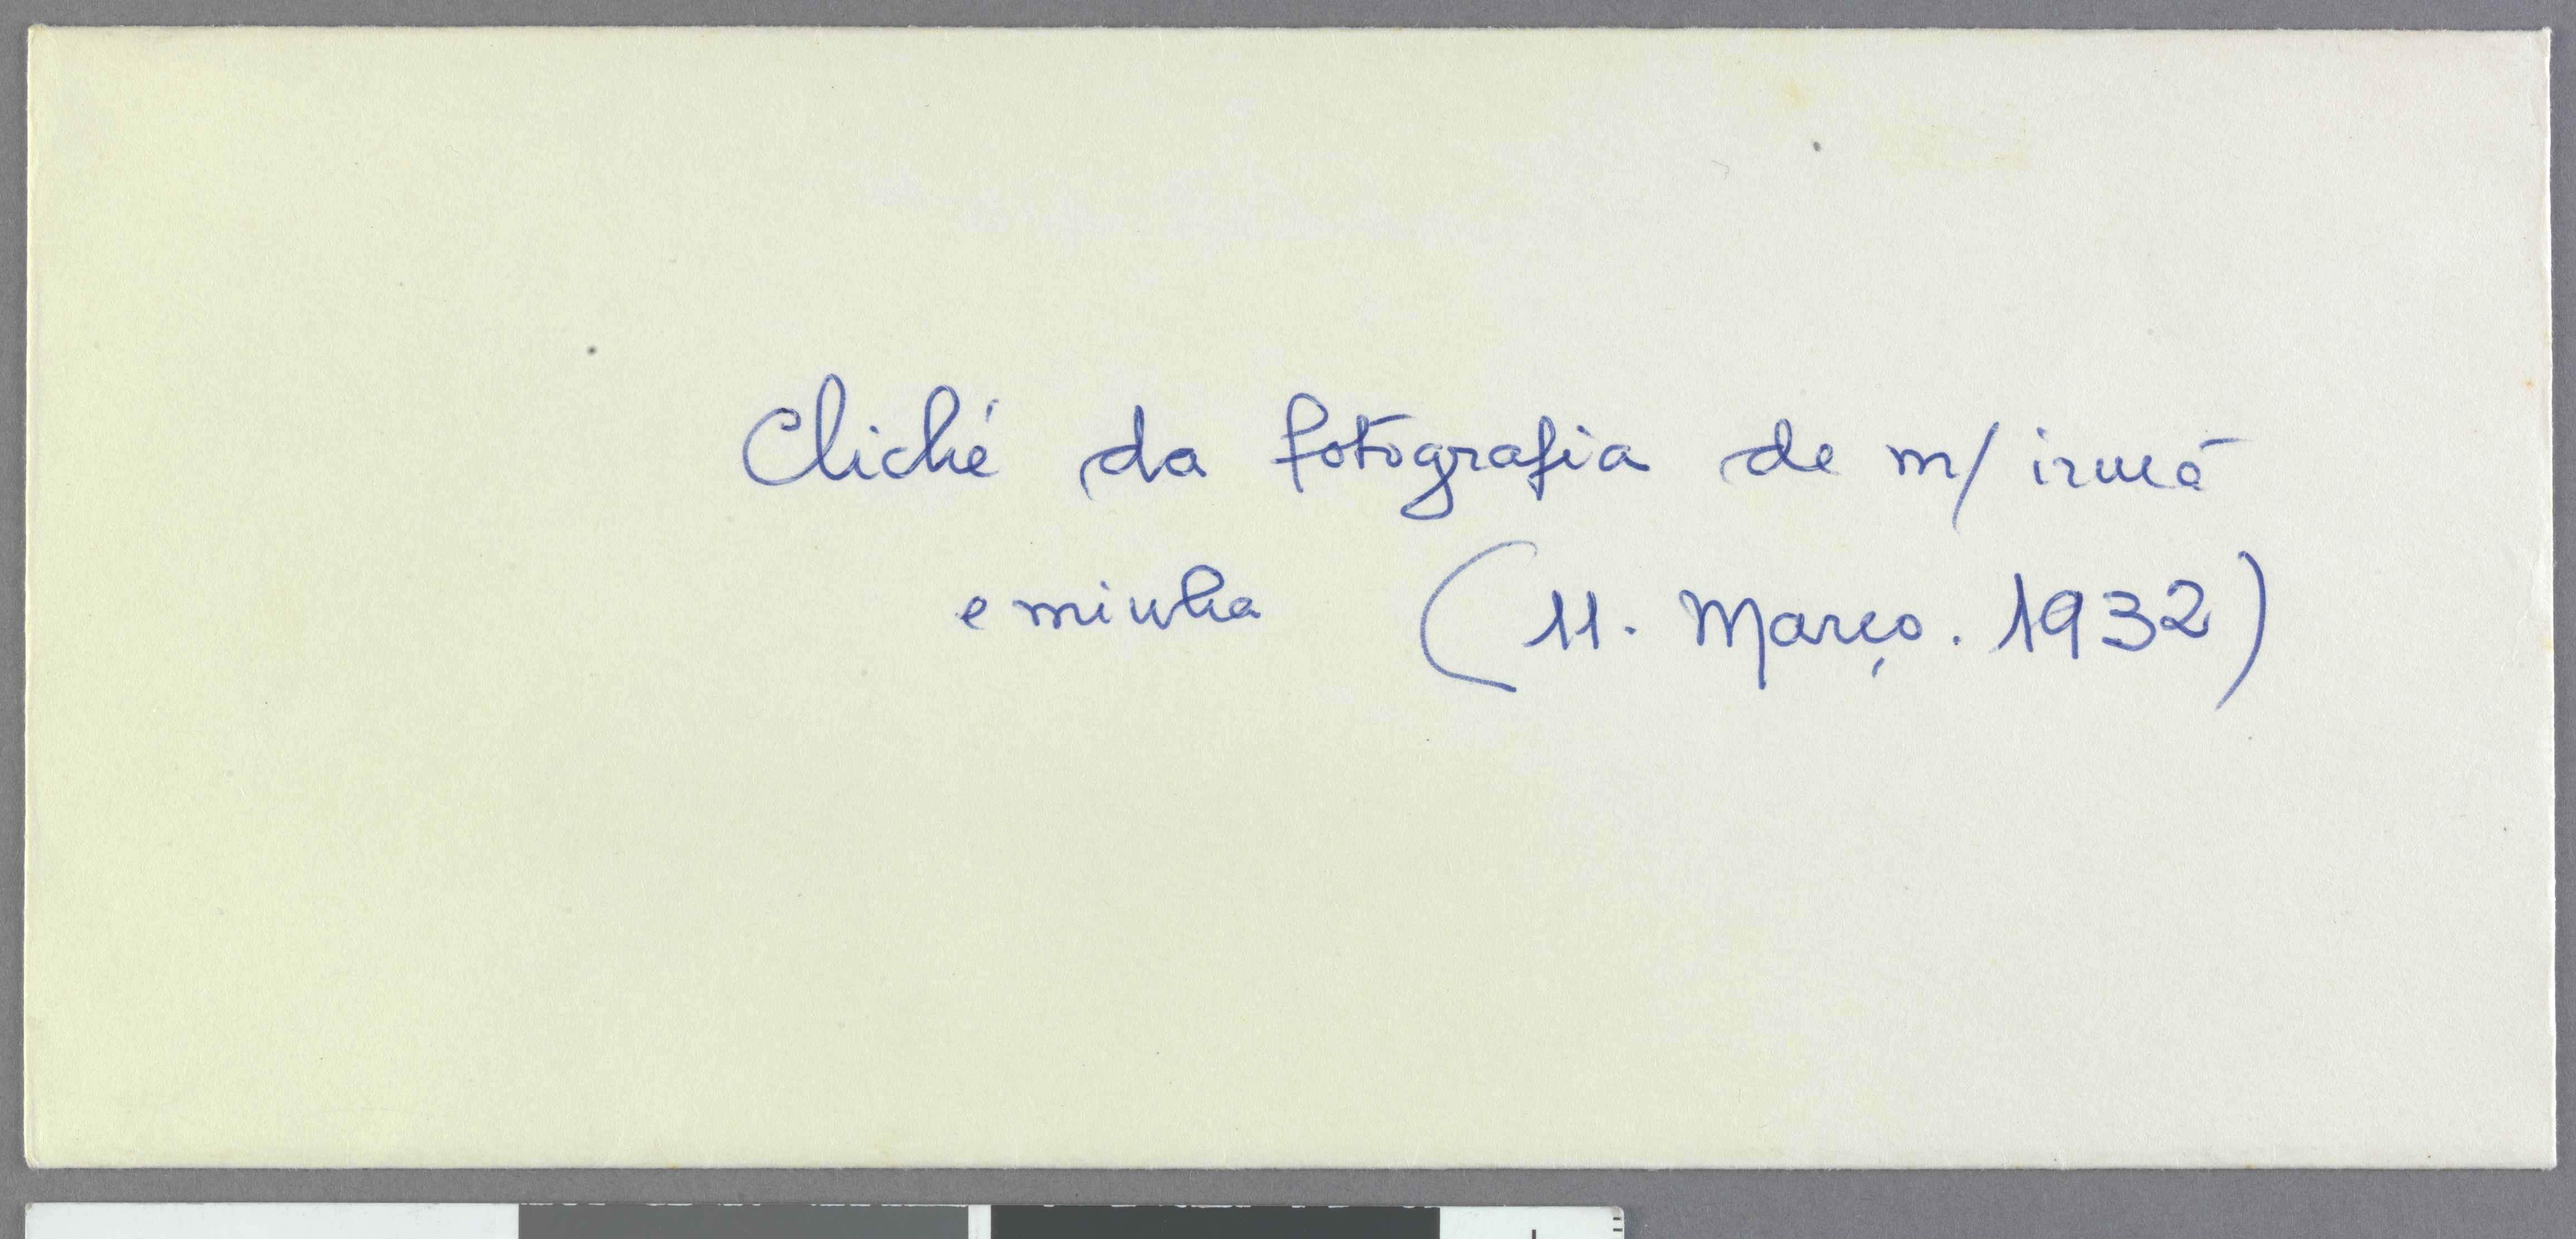 Cliché da fotografia de m/ irmã
e minha (11. Março. 1932)